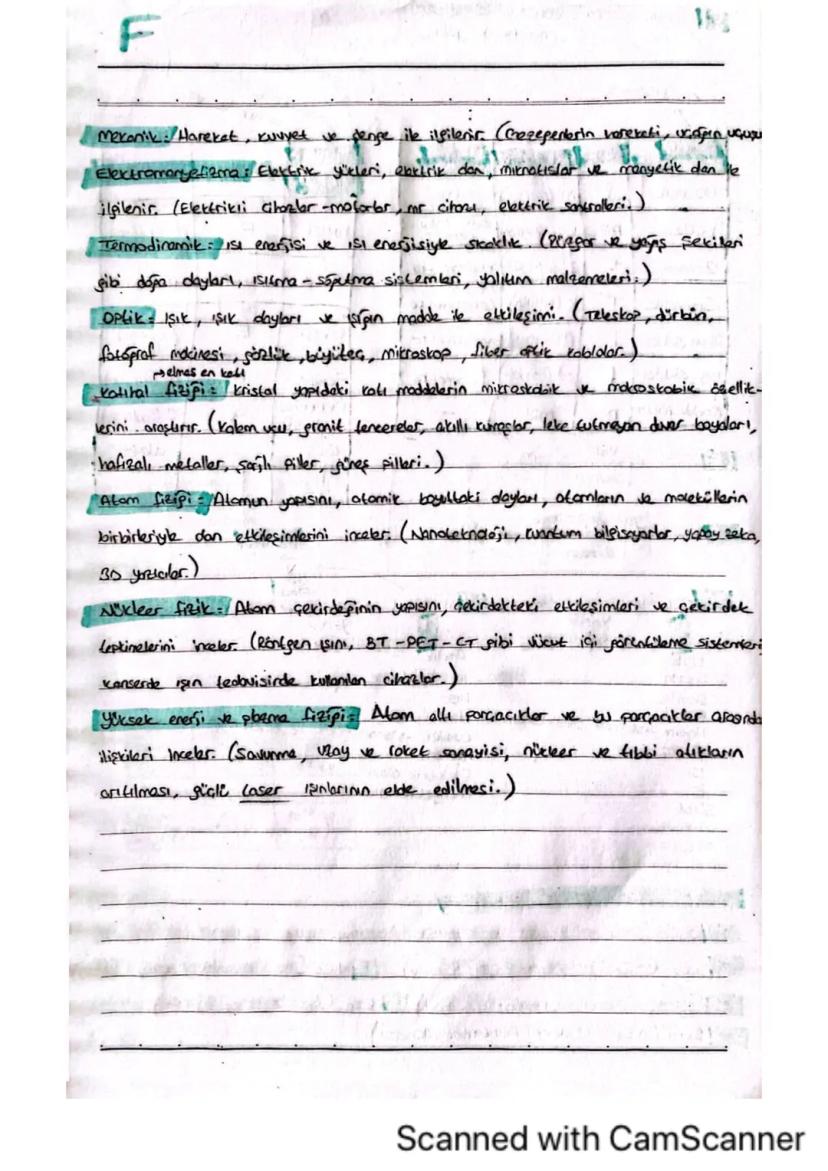 F
Mekanik: Hareket, kuvvet ve denge ile ilgilenir. (Gezegenlerin hareketi, uçağın uçuşu
Elektromanyetizma: Elektrik yükleri, elektrik alan, mıknatıslar ve manyetik alan ile
ilgilenir. (Elektrikli cihazlar-motorlar, mr cihazı, elektrik santralleri.)
Termodinamik: ısı enerjisi ve ısı enerjisiyle sıcaklık. (Rüzgar ve yağış şekilleri
gibi doğa olayları, ısıtma-soğutma sistemleri, yalıtım malzemeleri.)
Optik: Işık, ışık olayları ve ışığın madde ile etkileşimi. (Teleskop, dürbün,
fotoğraf makinesi, gözlük, büyüteç, mikroskop, fiber optik kablolar.)
→elmas en katı
Katıhal fiziği: Kristal yapıdaki katı maddelerin mikroskobik ve makroskobik özellik-
lerini araştırır. (Kalem ucu, granit tencereler, akıllı kumaşlar, leke tutmayan duvar boyaları,
hafızalı metaller, şarjlı piller, güneş pilleri.)
Atom fiziği: Atomun yapısını, atomik boyuttaki olayları, atomların ve moleküllerin
birbirleriyle olan etkileşimlerini inceler. (Nanoteknoloji, kuantum bilgisayarlar, yapay zeka,
3D yazıcılar.)
Nükleer fizik: Atom çekirdeğinin yapısını, çekirdekteki etkileşimleri ve çekirdek
tepkimelerini inceler. (Röntgen ışını, BT-PET-CT gibi vücut içi görüntüleme sistemleri
kanserde ışın tedavisinde kullanılan cihazlar.)
Yüksek enerji ve plazma fiziği: Atom altı parçacıklar ve bu parçacıklar arasında
ilişkileri inceler. (Savunma, uzay ve roket sanayisi, nükleer ve tıbbi atıkların
arıtılması, güçlü laser ışınlarının elde edilmesi.)
Scanned with CamScanner